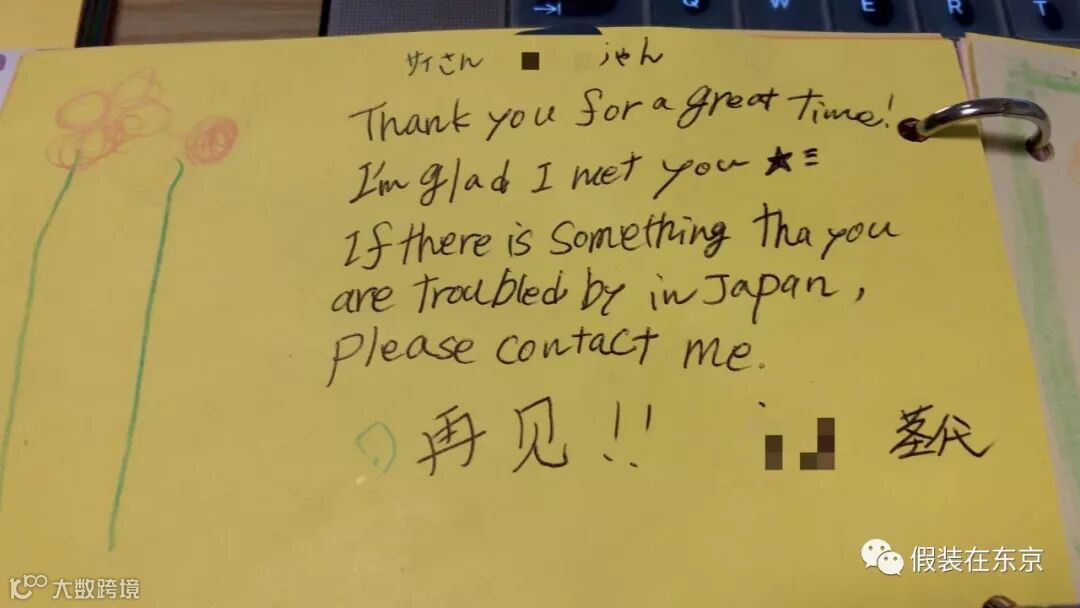 Q W E R T
サイさん ゃん
Thank you for a great time!
I'm glad I met you ★≡
If there is something tha you
are troubled by in Japan,
please contact me.
再见!!
茎代
假装在东京
大数跨境